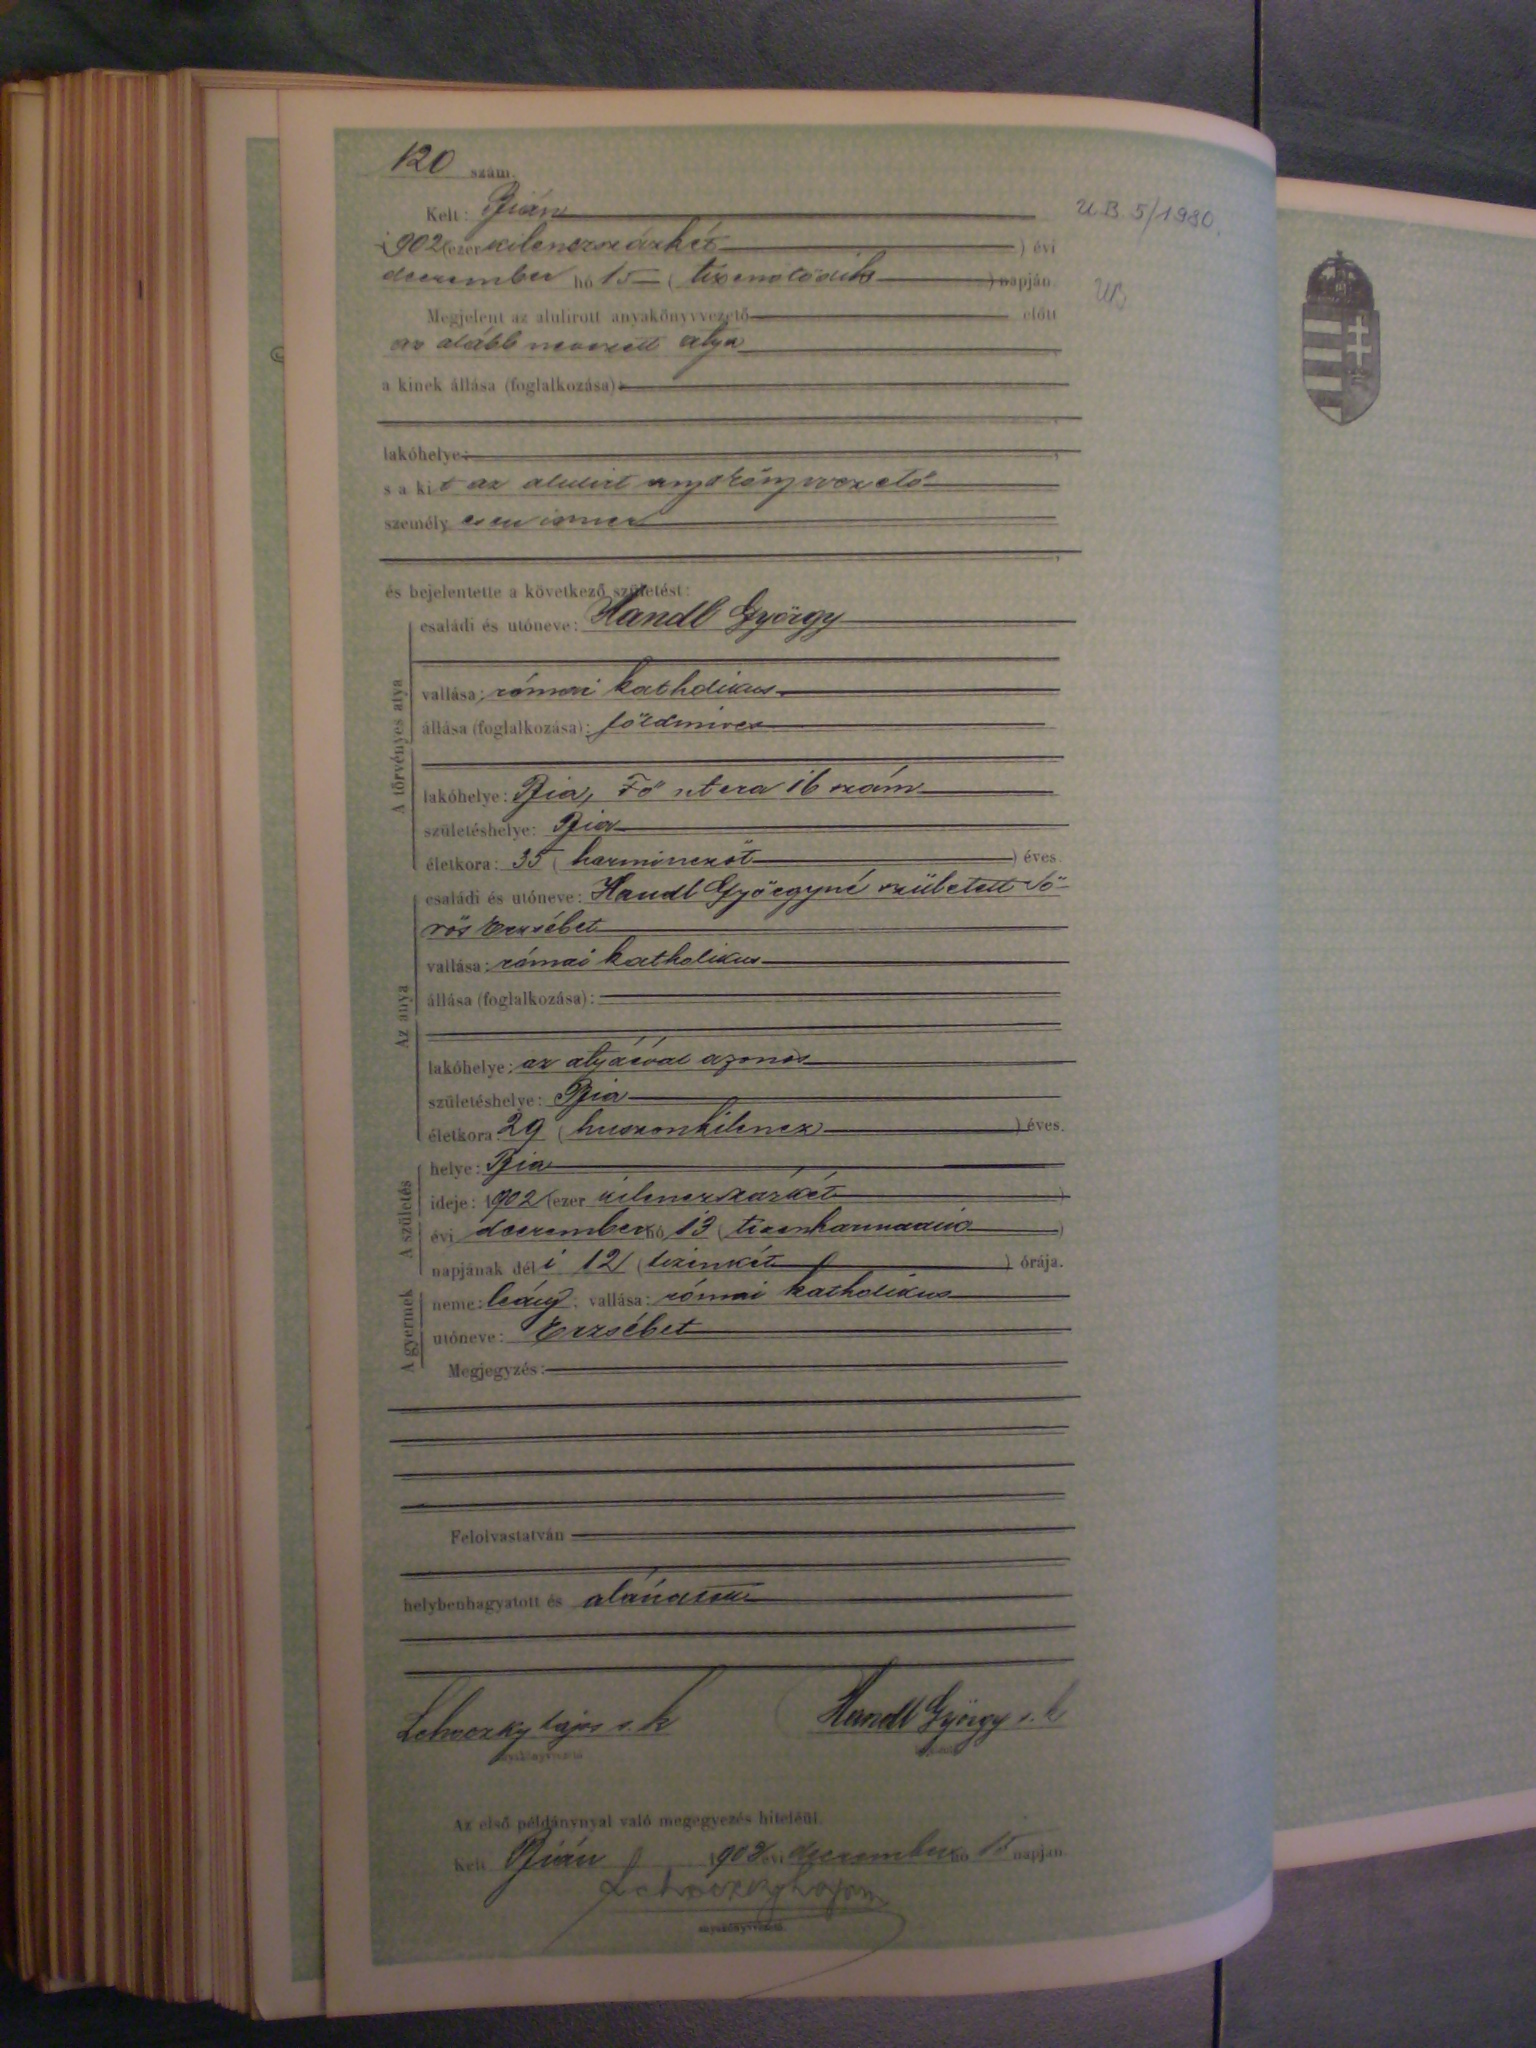 120 szám.
Kelt: Bián
U.B. 5/1980.
1902 (ezer kilenczszázkét) évi
deczember hó 15 (tizenötödik) napján
UB
Megjelent az alulirott anyakönyvvezető előtt
az alább nevezett atya,
a kinek állása (foglalkozása):
lakóhelye:
s a kit az alulirt anyakönyvvezető
személyesen ismer
és bejelentette a következő születést:
A törvényes atya
családi és utóneve: Handl György
vallása: római katholikus
állása (foglalkozása): földmives
lakóhelye: Bia, Fő utcza 16 szám
születéshelye: Bia
életkora: 35 (harminczöt) éves.
Az anya
családi és utóneve: Handl Györgyné született Sö-
rös Erzsébet
vallása: római katholikus
állása (foglalkozása):
lakóhelye: az atyáéval azonos
születéshelye: Bia
életkora: 29 (huszonkilencz) éves.
A születés
helye: Bia
ideje: 1902 (ezer kilenczszázkét)
évi deczember hó 13 (tizenharmadik)
napjának déli 12 (tizenkét) órája.
A gyermek
neme: leány; vallása: római katholikus
utóneve: Erzsébet
Megjegyzés:
Felolvastatván
helybenhagyatott és aláiratott
Lehoczky Lajos s. k
Handl György s. k
anyakönyvvezető
Az első példánynyal való megegyezés hiteléül.
Kelt Bián 1902 évi deczember hó 15 napján
Lehoczky Lajos
anyakönyvvezető